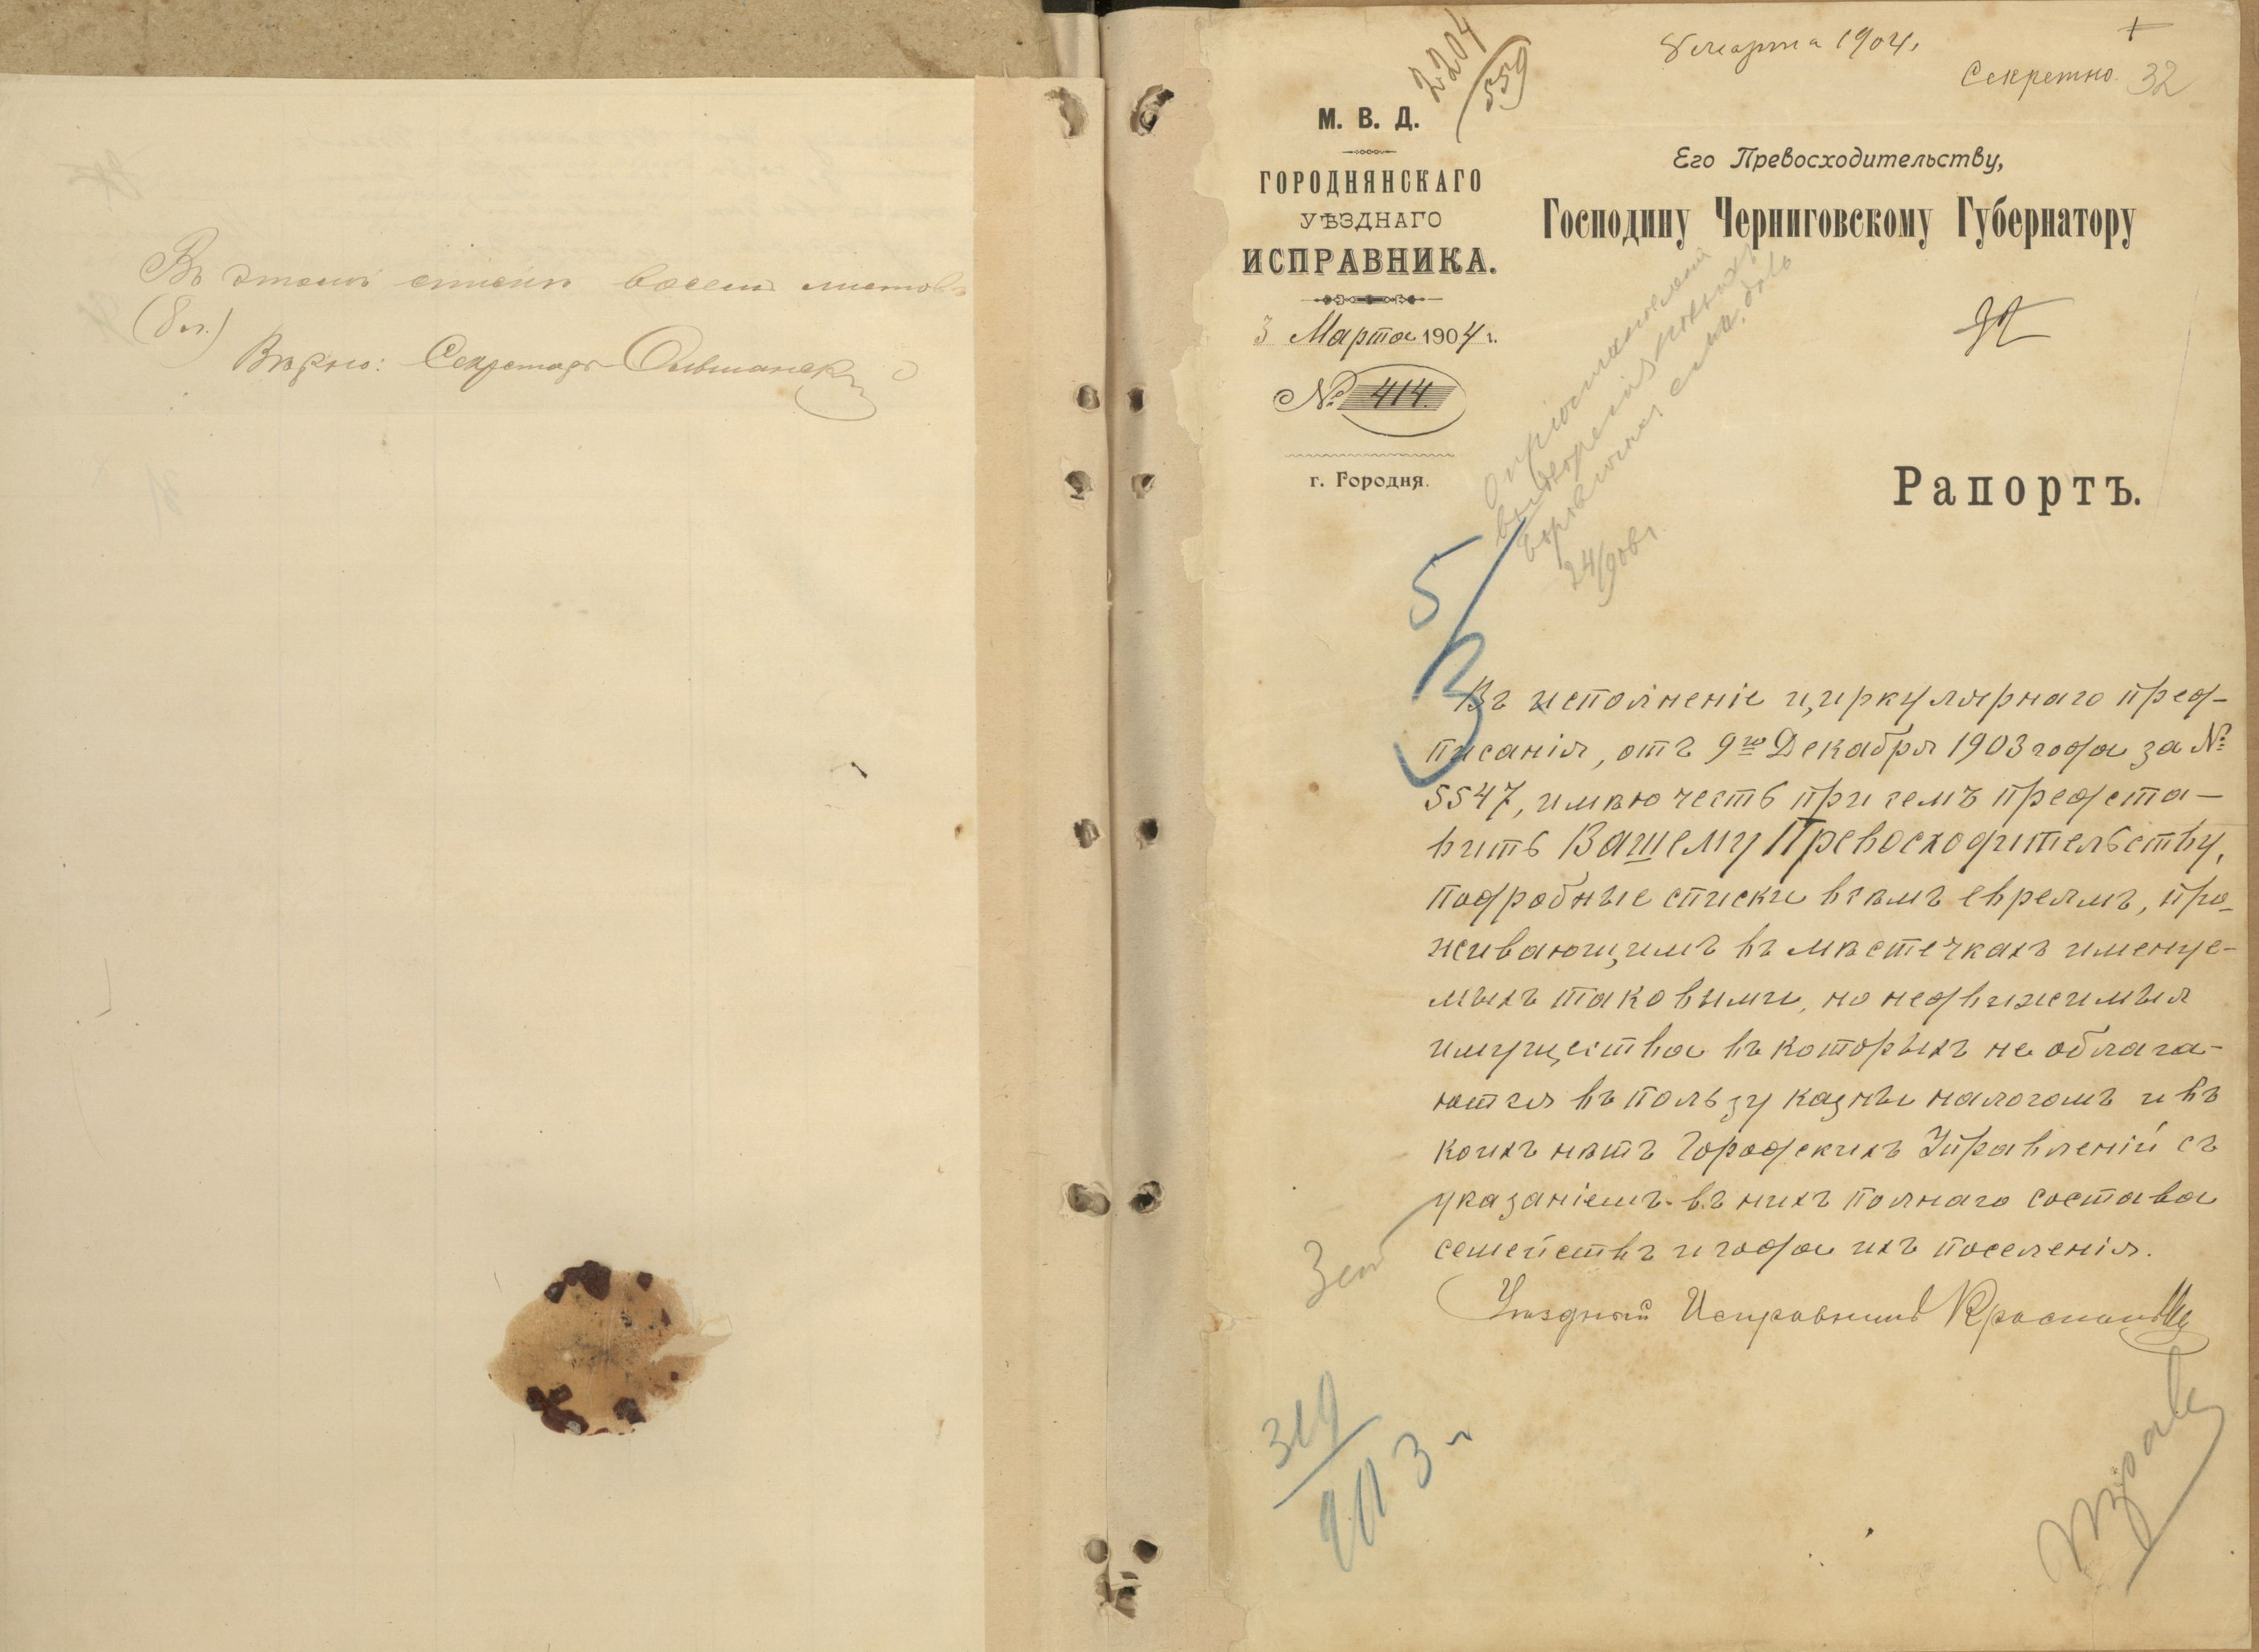 Въ этомъ списке восемь листовъ
(8 л.)
Вѣрно: Секретарь
2204/559
8 марта 1904 г.
Секретно. 32
М. В. Д.
ГОРОДНЯНСКАГО
УѢЗДНАГО
ИСПРАВНИКА.
3 Марта 1904 г.
№ 414.
г. Городня.
Его Превосходительству,
Господину Черниговскому Губернатору
Рапортъ.
5/3
Въ исполненіе циркулярнаго пред-
писанія, отъ 9го Декабря 1903 года за №
5547, имѣю честь при семъ предста-
вить Вашему Превосходительству,
подробные списки всѣмъ евреямъ, про-
живающимъ въ мѣстечкахъ именуе-
мыхъ таковыми, но недвижимыя
имущества въ которыхъ не облага-
ются въ пользу казны налогомъ и въ
коихъ нѣтъ Городскихъ Управленій съ
указаніемъ въ нихъ полнаго состава
семействъ и года ихъ поселенія.
Уѣздный Исправникъ
319